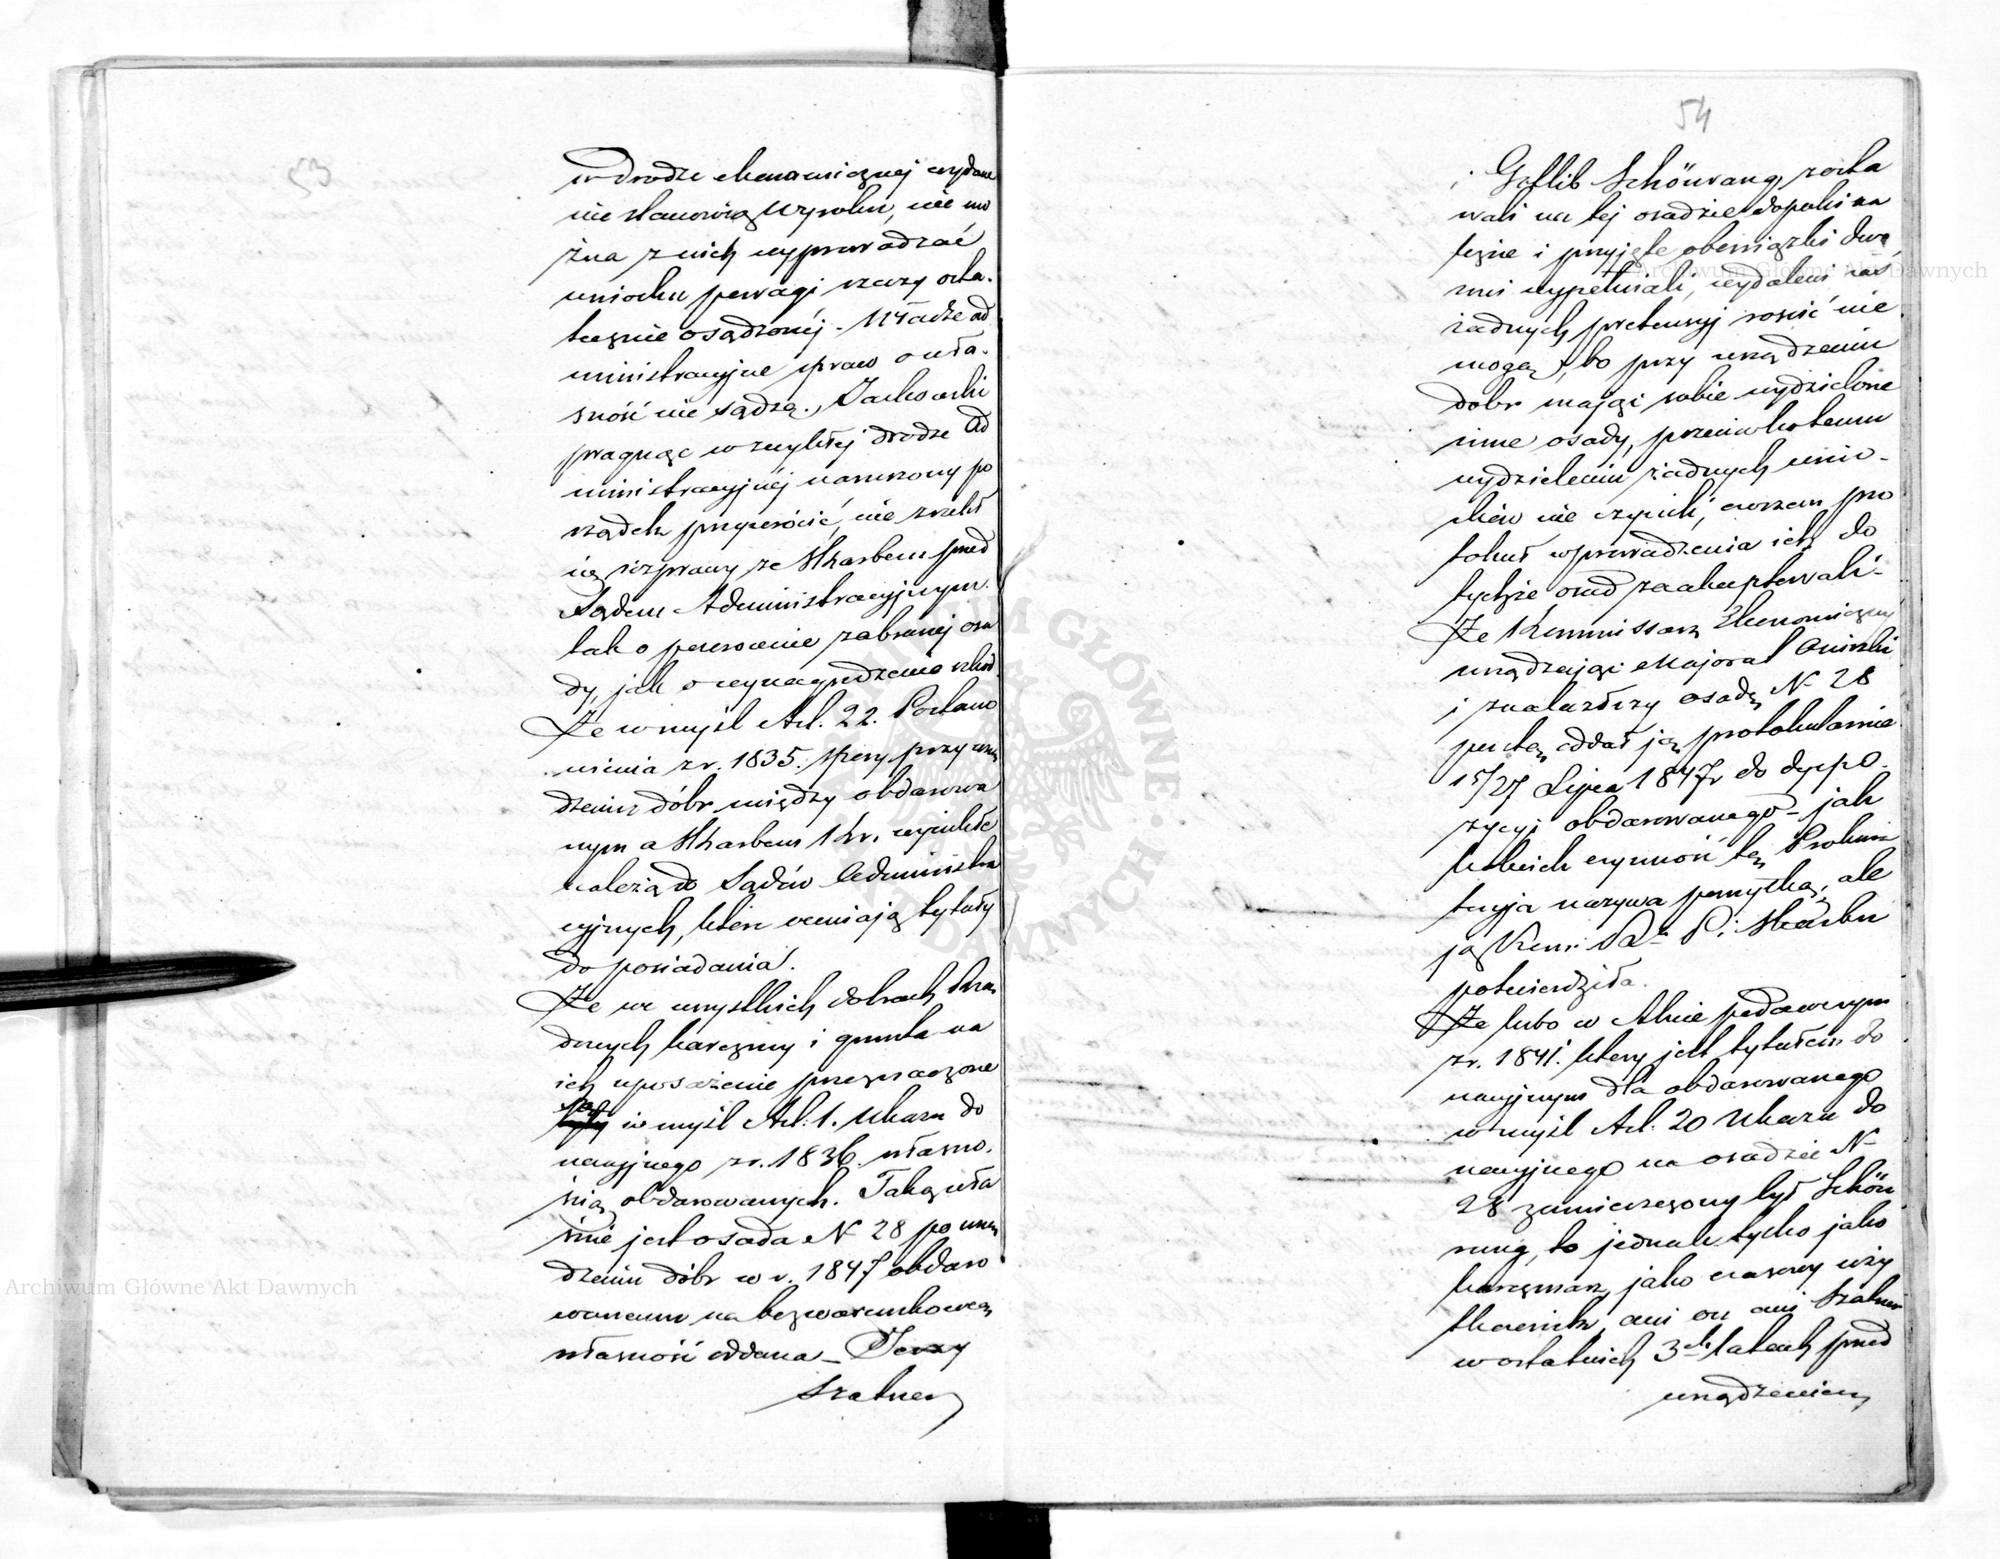 53
w drodze ekonomicznej wydane
nie stanowią wyroku, nie mo
żna z nich wyprowadzać
wniosku powagi rzeczy osta-
tecznie osądzonéj. Władze ad
ministracyjne spraw o wła-
sność nie sądzą., Jackowski
pragnąc w zwykłej drodze Ad
ministracyjnéj naruszony po
rządek przywrócić, nie zrzekł
się rozprawy ze Skarbem przed
Sądem Administracyjnym
tak o powrócenie zabranej osa
dy, jak o wynagrodzenie szkod
Że w myśl Art. 22. Postano
wienia z r. 1835. spory przy urzą
dzeniu dóbr między obdarowa
nym a Skarbem Kr. wynikłe
należą do Sądów Administra
cyjnych, które oceniają tytuły
do posiadania.
Że we wszystkich dobrach Skar
bowych karczmy i grunta na
ich uposażenie przeznaczone
są
w myśl Art. 1. Ukazu do
nacyjnego z r. 1836. własno-
ścią obdarowanych. Taką wła
śnie jest osada N 28 po urzą
dzeniu dóbr w r. 1847 obdaro
wanemu na bezwarunkową
własność oddana – Jerzy
Szatner
54
i Gottlib Schönrang, zosta
wali na tej osadzie dopóki na
leżne i przyjęte obowiązki dwo
rowi wypełniali, wydaleni zaś
żadnych pretensyj rościć nie
mogą, bo przy urządzeniu
dobr mając sobie wydzielone
inne osady, przeciwko temu
wydzieleniu żadnych wnio-
sków nie czynili, owszem pro
tokuł wprowadzenia ich do
tychże osad zaakceptowali –
Że Kommissarz Ekonomiczny
urządzając Majorat
i znalazłszy osadę N 28
pustą oddał ją protokularnie
15/27 Lipca 1847 r do dyspo-
zycyi obdarowanego – jak
kolwiek czynność tę Prokura
torya nazywa pomyłką, ale
ją Kom: Rz. P. i Skarbu
potwierdziła.
Że lubo w Akcie podawczym
z r. 1841. który jest tytułem do
nacyjnym dla obdarowanego
w myśl Art. 20 Ukazu do
nacyjnego na osadzie N
28 zamieszczony był Schön
rang, to jednak tylko jako
karczmarz, jako czasowy uży
tkownik, ani on ani Szatner
w ostatnich 3ch latach przed
urządzeniem
Archiwum Główne Akt Dawnych
Archiwum Główne Akt Dawnych
ARCHIWUM GŁÓWNE AKT DAWNYCH